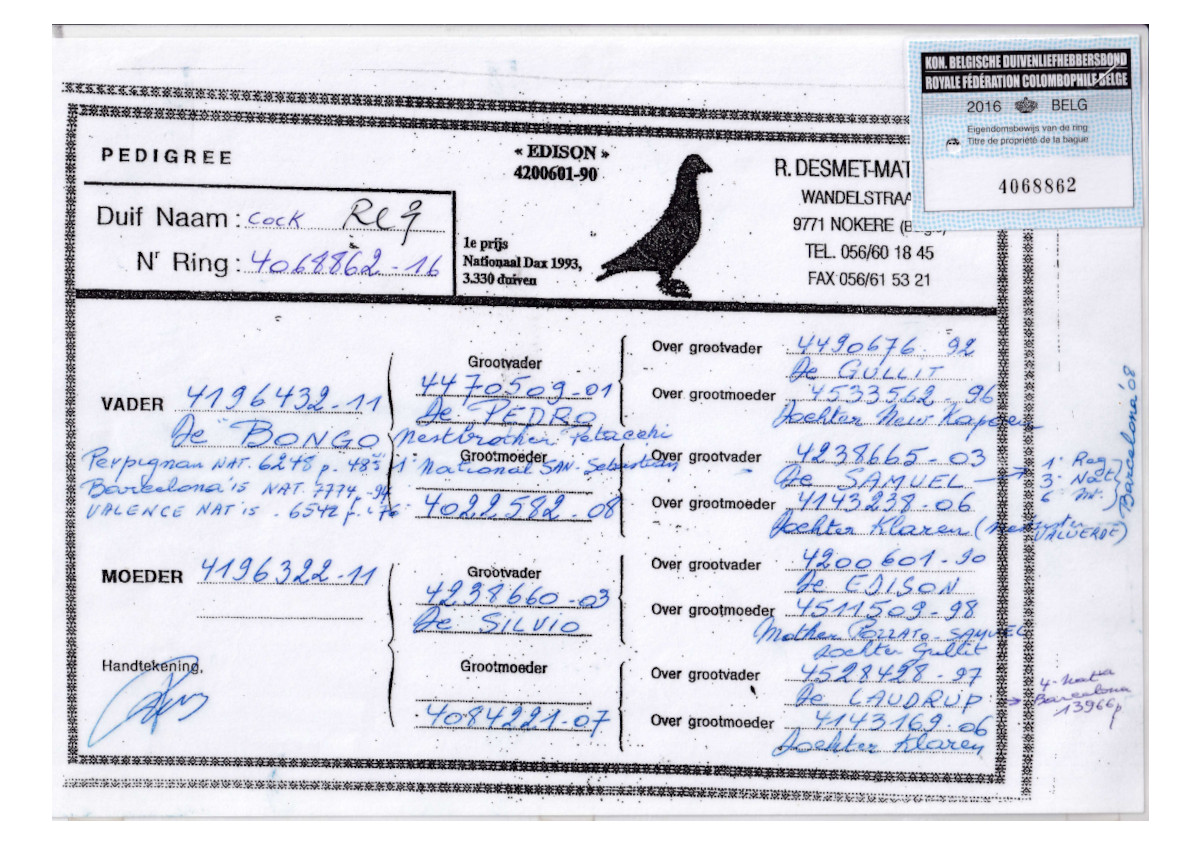 KON. BELGISCHE DUIVENLIEFHEBBERSBOND
ROYALE FÉDÉRATION COLOMBOPHILE BELGE
2016 BELG
Eigendomsbewijs van de ring
Titre de propriété de la bague
4068862
PEDIGREE
Duif Naam : Cock
Nr Ring : 4068862-16
« EDISON »
4200601-90
1e prijs
Nationaal Dax 1993,
3.330 duiven
R. DESMET-MAT
WANDELSTRAA
9771 NOKERE
TEL. 056/60 18 45
FAX 056/61 53 21
VADER 4196432-11
De BONGO
Perpignan NAT. 6248 p. 48
Barcelona'15 NAT. 7774 - 94
VALENCE NAT'15 . 6542 p. 176
Grootvader
4470509-01
De PEDRO
Nestbrother Petacchi
1 National SAN-Sebastian
Grootmoeder
4022582-08
Over grootvader 4490676-92
De GULLIT
Over grootmoeder 4533562-96
Dochter New Kapoen
Over grootvader 4238665-03
De SAMUEL
1. Reg
3. Natl
6 Int.
Barcelona'08
Over grootmoeder 4143238-06
Dochter Klaren (
VALVERDE)
MOEDER 4196322-11
Grootvader
4238660-03
De SILVIO
Grootmoeder
4084221-07
Over grootvader 4200601-90
De EDISON
Over grootmoeder 4511509-98
Mother POZZATO-SAMUEL
Dochter Gullit
Over grootvader 4528428-97
De LAUDRUP
4. Natl
Barcelona
13966p
Over grootmoeder 4143169-06
Dochter Klaren
Handtekening,